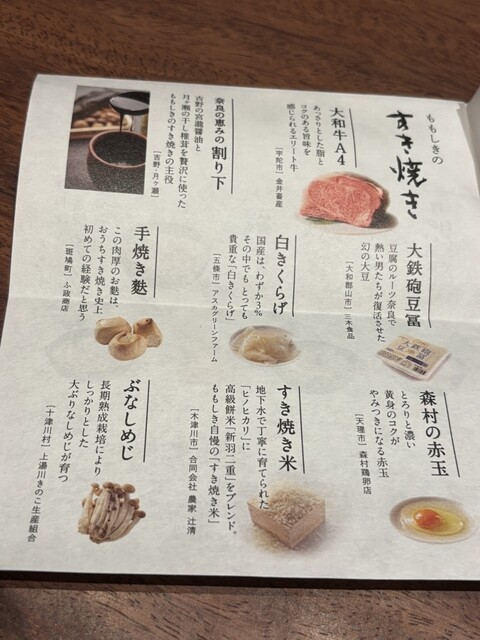 ももしきの
すき焼き
大和牛A4
あっさりとした脂と
コクのある旨味を
感じられるエリート牛
［宇陀市］金井畜産
奈良の恵みの割り下
吉野の宮瀧醤油と
月ヶ瀬の干し椎茸を贅沢に使った
ももしきのすき焼きの主役
［吉野・月ヶ瀬］
大鉄砲豆冨
豆腐のルーツ奈良で
熱い男たちが復活させた
幻の大豆
［大和郡山市］三木食品
白きくらげ
国産は、わずか3%
その中でも とっても
貴重な「白きくらげ」
［五條市］アスカグリーンファーム
手焼き麩
この肉厚のお麩は、
おうちすき焼き史上
初めての経験だと思う
［斑鳩町］ふ政商店
森村の赤玉
とろりと濃い
黄身のコクが
やみつきになる赤玉
［天理市］森村鶏卵店
すき焼き米
地下水で丁寧に育てられた
「ヒノヒカリ」に
高級餅米「新羽二重」をブレンド。
ももしき自慢の「すき焼き米」
［木津川市］合同会社 農家 辻清
ぶなしめじ
長期熟成栽培により
しっかりとした
大ぶりなしめじが育つ
［十津川村］上湯川きのこ生産組合